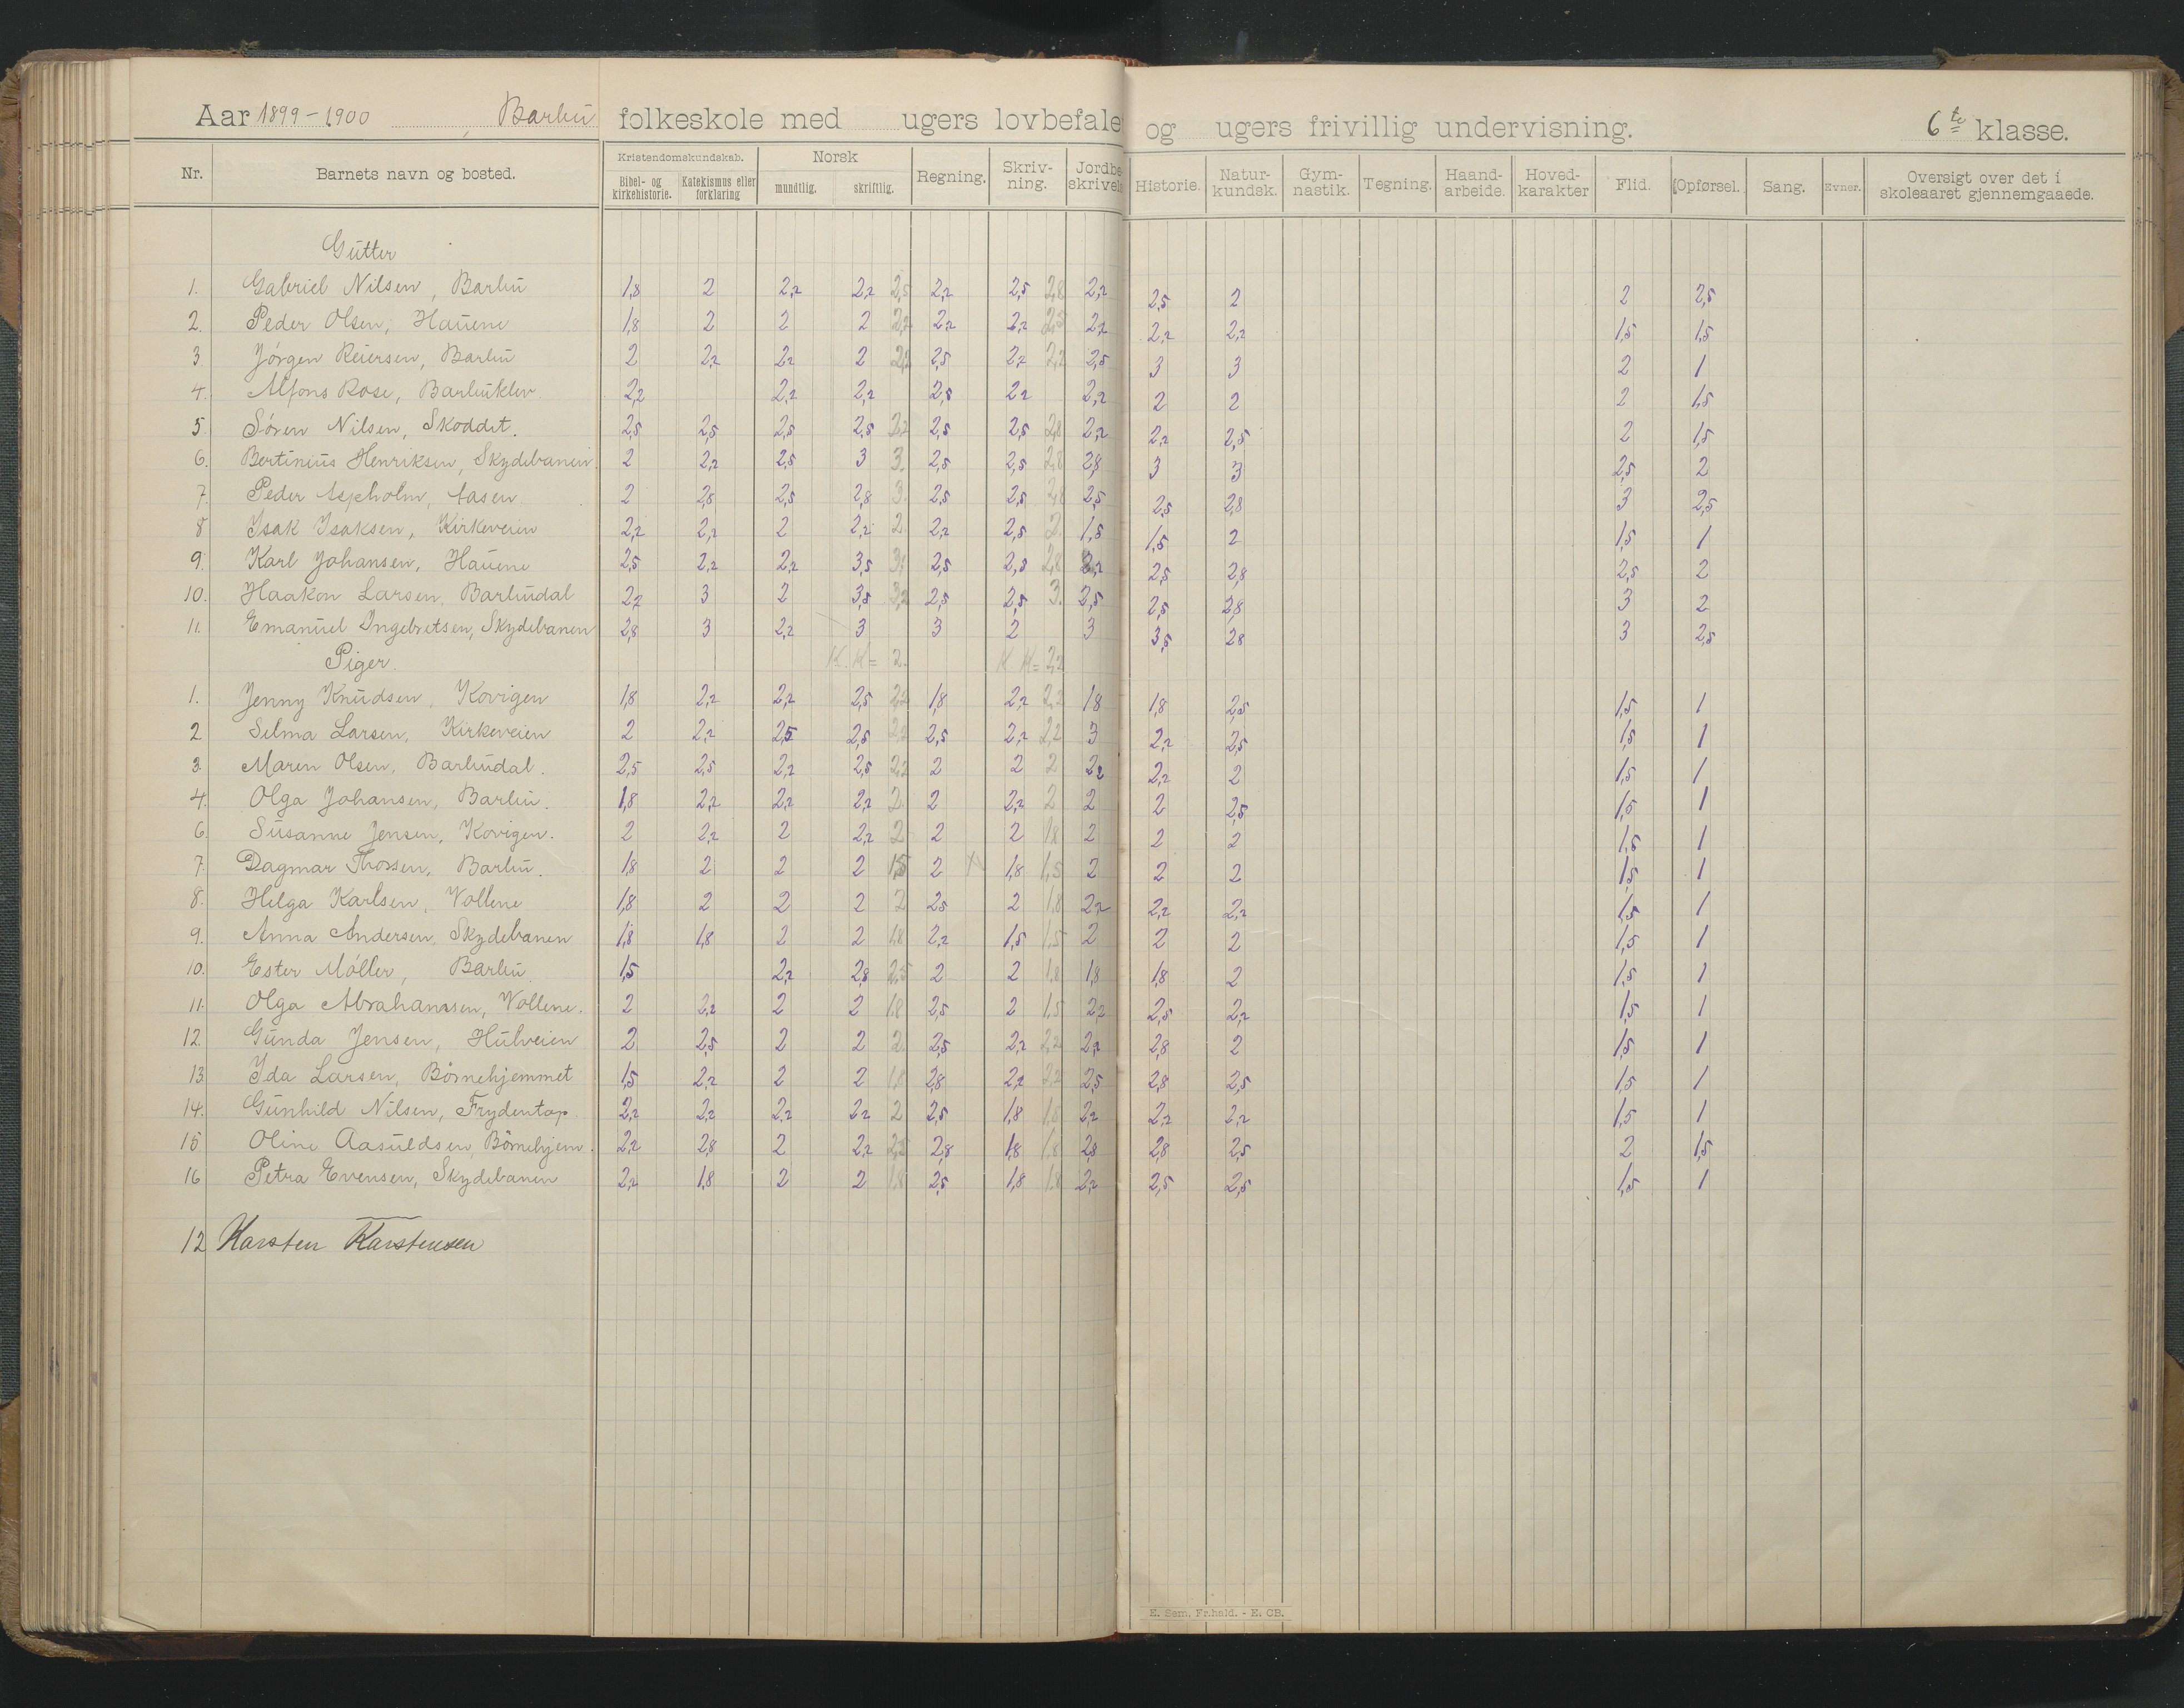 Aar 1899-1900 Barbu folkeskole med ugers lovbefale og ugers frivillig undervisning. 6te klasse.
Nr. Barnets navn og bosted. Kristendomskundskab. Norsk Regning. Skriv-ning. Jordbe skrivels Historie. Natur-kundsk. Gym-nastik. Tegning. Haand-arbeide. Hoved-karakter Flid. Opførsel. Sang. Evner. Oversigt over det i skoleaaret gjennemgaaede.
Bibel- og kirkehistorie. Katekismus eller forklaring mundtlig. skriftlig.
Gutter
1. Gabriel Nilsen, Barbu 1,8 2 2,2 2,2 2,5 2,2 2,5 2,8 2,2 2,5 2 2 2,5
2. Peder Olsen, Hauene 1,8 2 2 2 2,2 2,2 2,2 2,5 2,2 2,2 2,2 1,5 1,5
3. Jörgen Reiersen, Barbu 2 2,2 2,2 2 2,2 2,5 2,2 2,2 2,5 3 3 2 1
4. Alfons Rose, Barbuklev 2,2 2,2 2,2 2,5 2,2 2,2 2 2 2 1,5
5. Sören Nilsen, Skoddet. 2,5 2,5 2,5 2,5 2,2 2,5 2,5 2,8 2,2 2,2 2,5 2 1,5
6. Bertinius Henriksen, Skydebanen 2 2,2 2,5 3 3 2,5 2,5 2,8 2,8 3 3 2,5 2
7. Peder Aspholm, Aasen 2 2,8 2,5 2,8 3 2,5 2,5 2,8 2,5 2,5 2,8 3 2,5
8 Isak Isaksen, Kirkeveien 2,2 2,2 2 2,2 2 2,2 2,5 2 1,5 1,5 2 1,5 1
9. Karl Johansen, Hauene 2,5 2,2 2,2 3,5 3, 2,5 2,5 2,8 2,2 2,5 2,8 2,5 2
10. Haakon Larsen, Barbudal 2,2 3 2 3,5 3,2 2,5 2,5 3. 2,5 2,5 2,8 3 2
11. Emanuel Ingebretsen, Skydebanen 2,8 3 2,2 3 3 2 3 3,5 2,8 3 2,5
Piger. K. K = 2. K. K = 2,2
1. Jenny Knudsen, Kovigen 1,8 2,2 2,2 2,5 2,2 1,8 2,2 2,2 1,8 1,8 2,5 1,5 1
2 Selma Larsen, Kirkeveien 2 2,2 2,5 2,5 2,2 2,5 2,2 2,2 3 2,2 2,5 1,5 1
3. Maren Olsen, Barbudal. 2,5 2,5 2,2 2,5 2,2 2 2 2 2,2 2,2 2 1,5 1
4. Olga Johansen, Barbu. 1,8 2,2 2,2 2,2 2 2 2,2 2 2 2 2,5 1,5 1
6. Susanne Jensen, Kovigen. 2 2,2 2 2,2 2 2 2 1,8 2 2 2 1,5 1
7. Dagmar Thorsen, Barbu. 1,8 2 2 2 1,5 2 1,8 1,5 2 2 2 1,5 1
8. Helga Karlsen, Vollene 1,8 2 2 2 2 2,5 2 1,8 2,2 2,2 2,2 1,5 1
9. Anna Andersen, Skydebanen 1,8 1,8 2 2 1,8 2,2 1,5 1,5 2 2 2 1,5 1
10. Ester Möller, Barbu 1,5 2,2 2,8 2,5 2 2 1,8 1,8 1,8 2 1,5 1
11. Olga Abrahamsen, Vollene. 2 2,2 2 2 1,8 2,5 2 1,5 2,2 2,5 2,2 1,5 1
12. Gunda Jensen, Hulveien 2 2,5 2 2 2 2,5 2,2 2,2 2,2 2,8 2 1,5 1
13. Ida Larsen, Börnehjemmet 1,5 2,2 2 2 1,8 2,8 2,2 2,2 2,5 2,8 2,5 1,5 1
14. Gunhild Nilsen, Frydentop 2,2 2,2 2,2 2,2 2 2,5 1,8 1,5 2,2 2,2 2,2 1,5 1
15 Oline Aasuldsen, Börnehjem. 2,2 2,8 2 2,2 2,5 2,8 1,8 1,8 2,8 2,8 2,5 2 1,5
16 Petra Evensen, Skydebanen 2,2 1,8 2 2 1,8 2,5 1,8 1,8 2,2 2,5 2,5 1,5 1
12 Karsten Karstensen
E. Sem, Fr.hald. - E. CB.